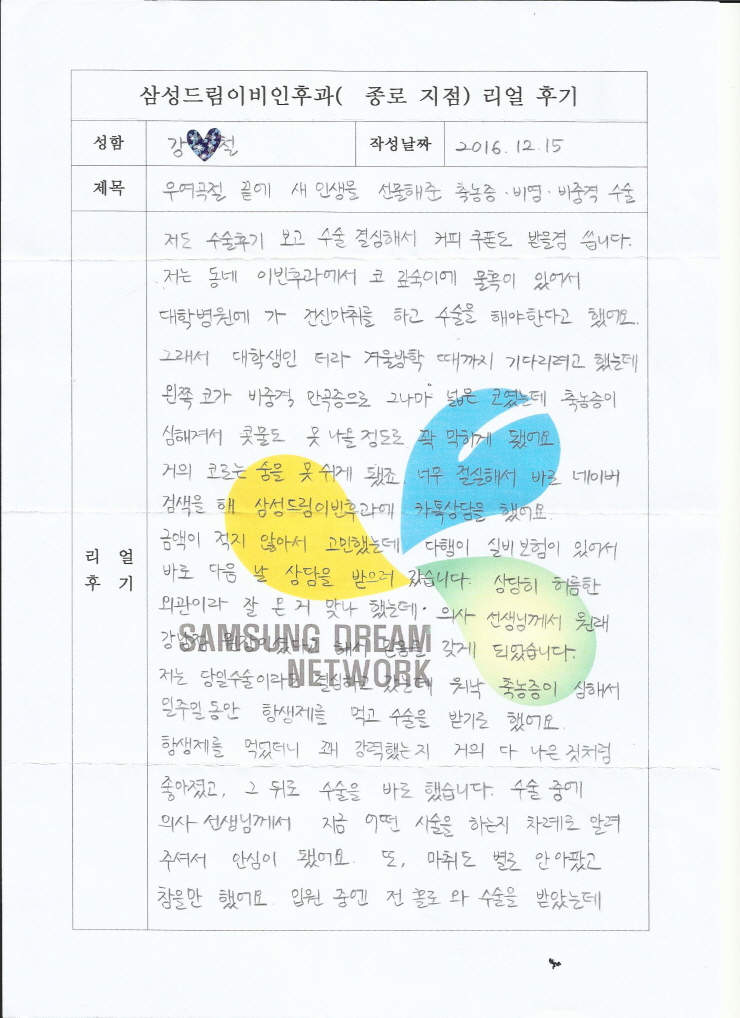 삼성드림이비인후과( 종로 지점) 리얼 후기
성함 강 철 작성날짜 2016.12.15
제목 우여곡절 끝에 새 인생을 선물해준 축농증·비염·비중격 수술
리얼 후기
저도 수술후기 보고 수술 결심해서 커피 쿠폰도 받을겸 씁니다.
저는 동네 이빈후과에서 코 깊숙이에 물혹이 있어서
대학병원에 가 전신마취를 하고 수술을 해야한다고 했어요.
그래서 대학생인 터라 겨울방학 때까지 기다리려고 했는데
왼쪽 코가 비중격 만곡증으로 그나마 넓은 코였는데 축농증이
심해져서 콧물도 못 나올 정도로 꽉 막히게 됐어요
거의 코로는 숨을 못 쉬게 됐죠 너무 절실해서 바로 네이버
검색을 해 삼성드림이빈후과에 카톡상담을 했어요.
금액이 적지 않아서 고민했는데 다행이 실비보험이 있어서
바로 다음 날 상담을 받으러 갔습니다. 상당히 허름한
외관이라 잘 온 거 맞나 했는데· 의사 선생님께서 원래
강남점 원장이셨다고 해서 믿음을 갖게 되었습니다.
SAMSUNG DREAM
NETWORK
저는 당일수술이라고 결심하고 갔는데 워낙 축농증이 심해서
일주일동안 항생제를 먹고 수술을 받기로 했어요.
항생제를 먹었더니 꽤 강력했는지 거의 다 나은것처럼
좋아졌고, 그 뒤로 수술을 바로 했습니다. 수술 중에
의사 선생님께서 지금 어떤 시술을 하는지 차례로 알려
주셔서 안심이 됐어요. 또, 마취도 별로 안아팠고
참을만 했어요. 입원 중엔 전 홀로 와 수술을 받았는데